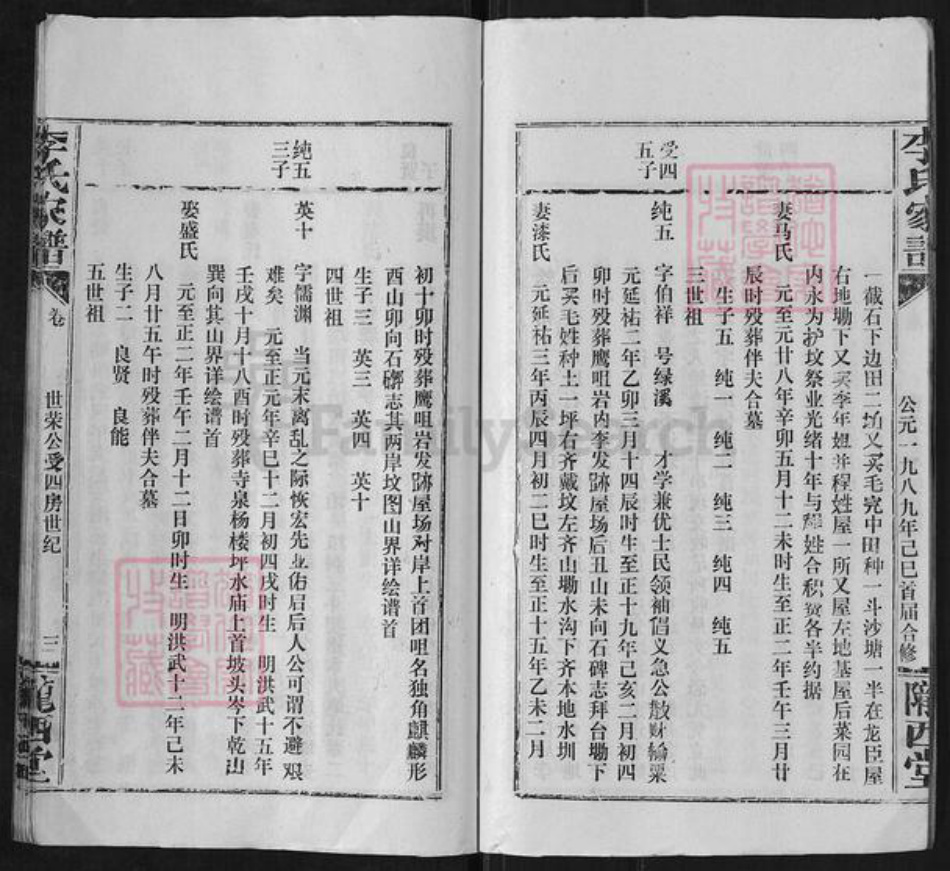 李氏家谱
公元一九八九年己巳首届合修
陇西堂
一截石下边田二坵又买毛宪中田种一斗沙塘一半在龙臣屋
右地塝下又买李年姐并程姓屋一所又屋左地基屋后菜园在
内永为护坟祭业光绪十年与程姓合积赀各半约据
妻马氏 元至元廿八年辛卯五月十二未时生至正二年壬午三月廿
辰时殁葬伴夫合墓
生子五 纯一 纯二 纯三 纯四 纯五
三世祖
受四
五子
纯五 字伯祥 号绿溪 才学兼优士民领袖倡义急公散财输粟
元延祐二年乙卯三月十四辰时生至正十九年己亥二月初四
卯时殁葬鹰咀岩内李发跡屋场后丑山未向石碑志拜台塝下
后买毛姓种土一坪右齐戴坟左齐山塝水沟下齐本地水圳
妻漆氏 元延祐三年丙辰四月初二巳时生至正十五年乙未二月
初十卯时殁葬鹰咀岩发跡屋场对岸上首团咀名独角麒麟形
酉山卯向石磾志其两岸坟图山界详绘谱首
生子三 英三 英四 英十
四世祖
纯五
三子
英十 字儒渊 当元末离乱之际恢宏先业佑启后人公可谓不避艰
难矣 元至正元年辛巳十二月初四戌时生 明洪武十五年
壬戌十月十八酉时殁葬寺泉杨楼坪水庙上首坡头岑下乾山
巽向其山界详绘谱首
娶盛氏 元至正二年壬午二月十二日卯时生 明洪武十二年己未
八月廿五午时殁葬伴夫合墓
生子二 良贤 良能
五世祖
李氏家谱
卷
世荣公受四房世纪
三
陇西堂
FamilySearch